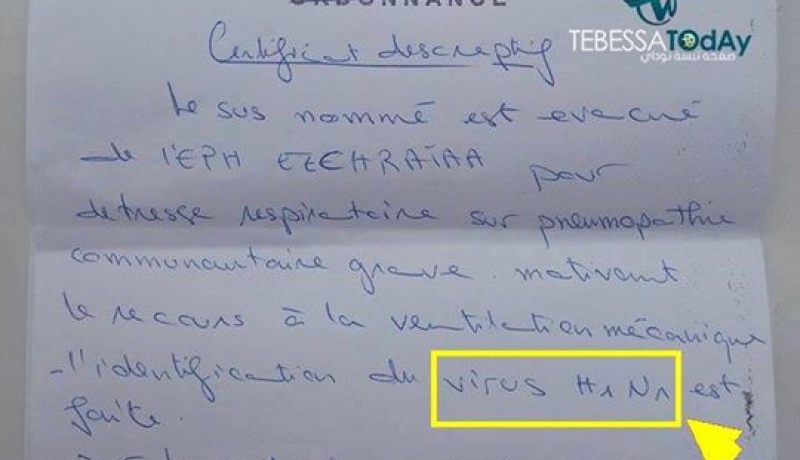 ORDONNANCE
TEBESSATOdAy
صفحة تبسة توداي
Certificat descreptif
Le sus nommé est evacué
de l'EPH EZEHRAÏAA pour
detresse respiratoire sur pneumopathie
communautaire grave. motivant
le recours à la ventilation mécanique
- l'identification du virus H1N1 est
faite.